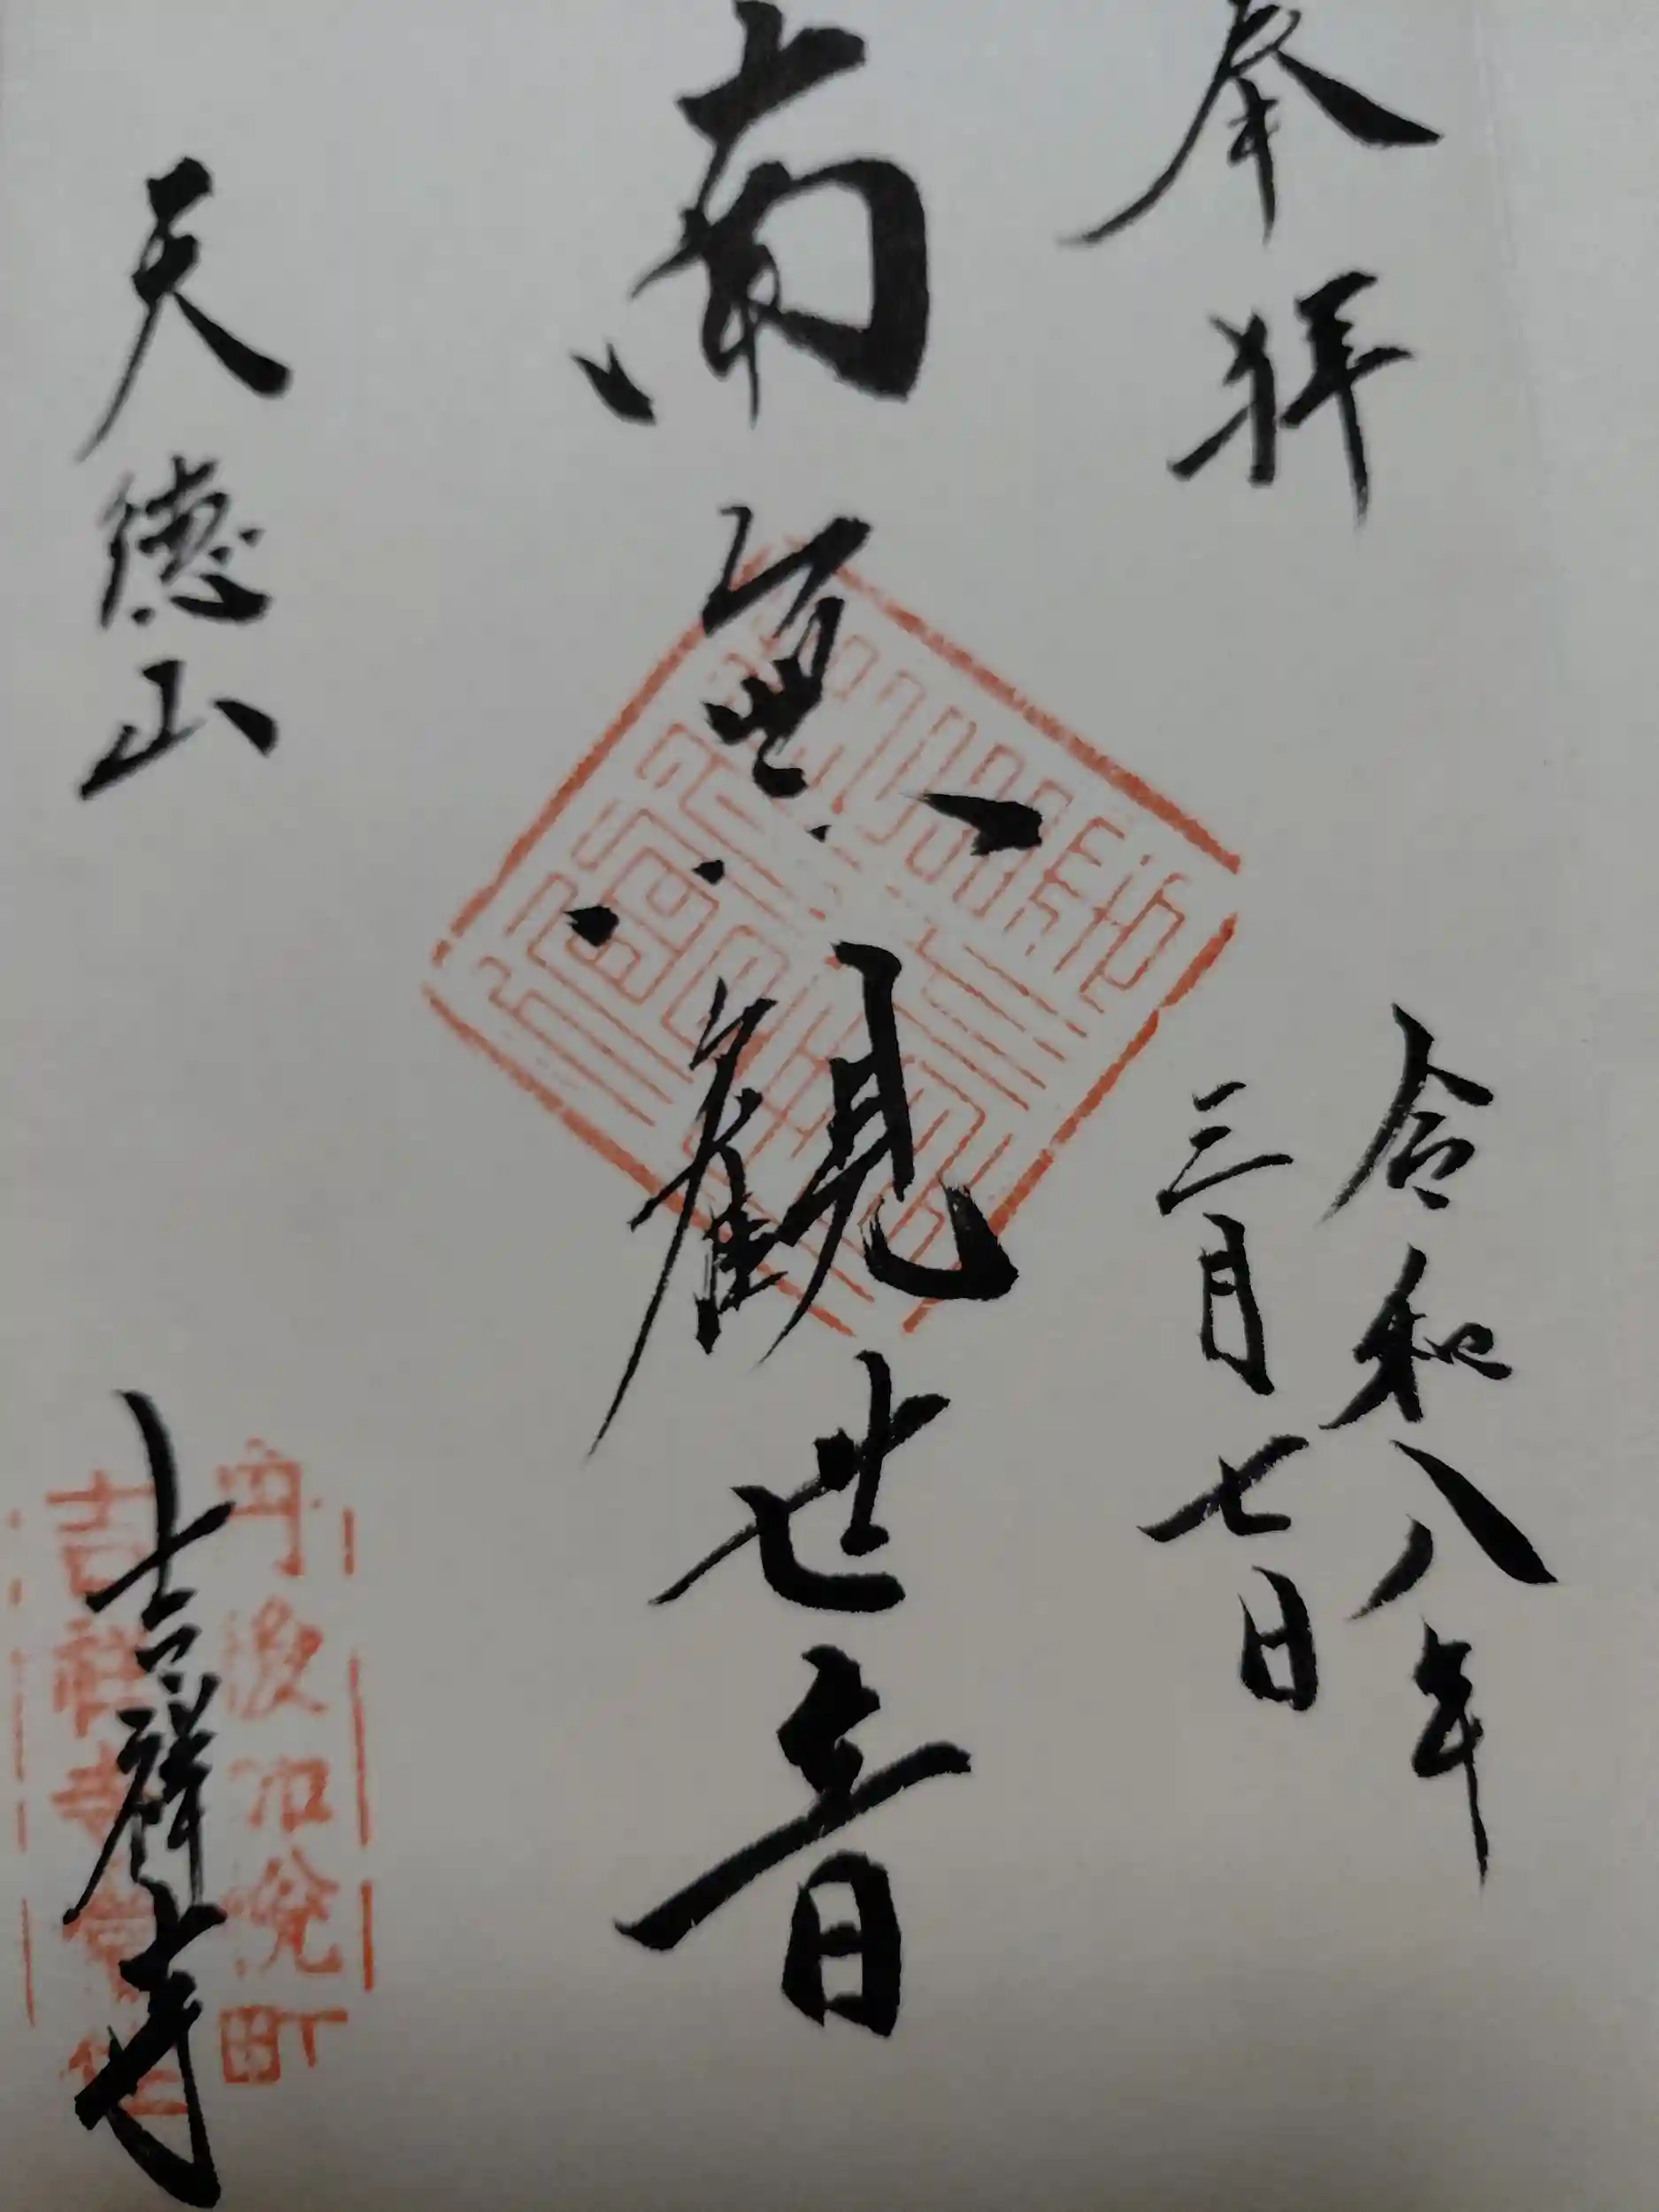 奉拝
令和八年
三月七日
南無観世音
天徳山
吉祥寺
丹後
町
吉祥寺